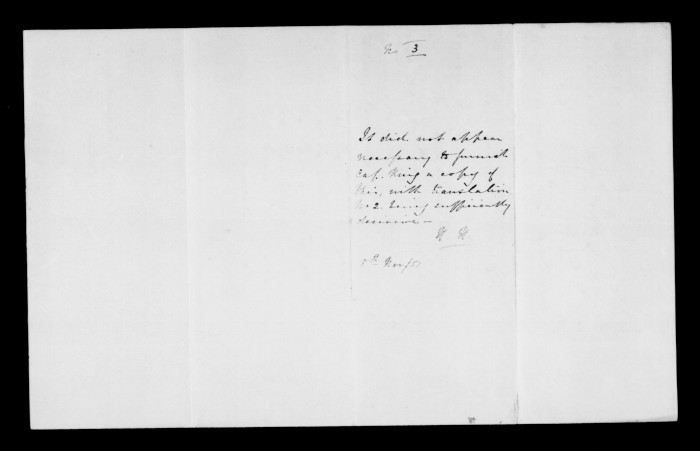 No 3
It did not appear
necessary to furnish
Cap. King a copy of
this, with translation
No 2. being sufficiently
decisive —
H. H.
8th Nov/51